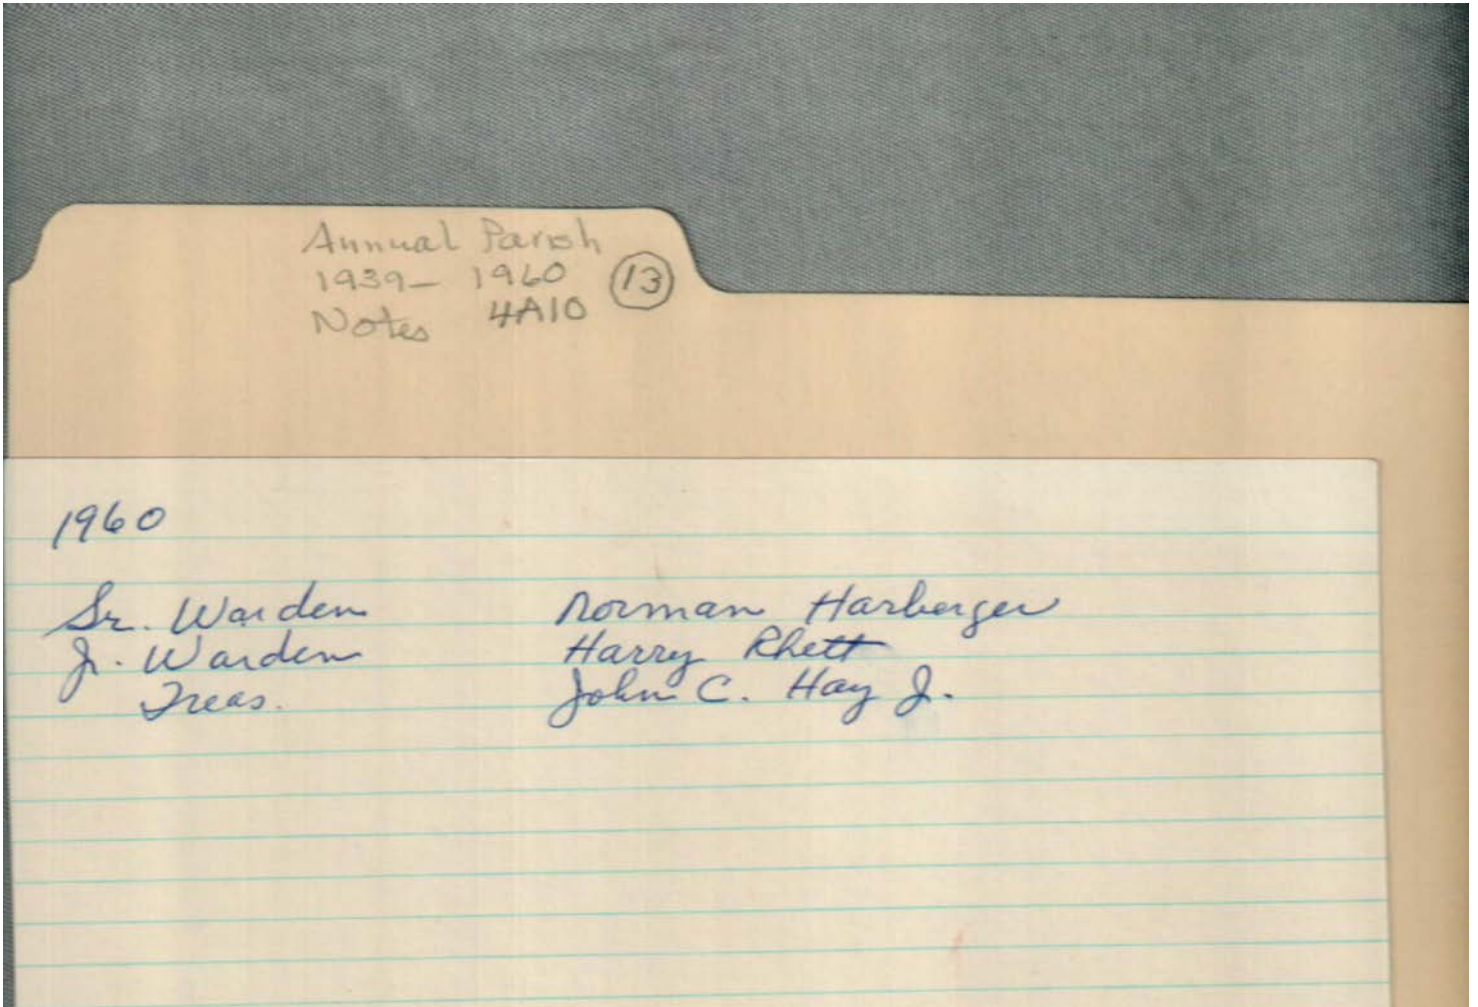 Annual Parish
1939- 1960 13
Notes 4A10
1960
Sr. Warden Norman Harberger
Jr. Warden Harry Rhett
Treas. John C. Hay Jr.